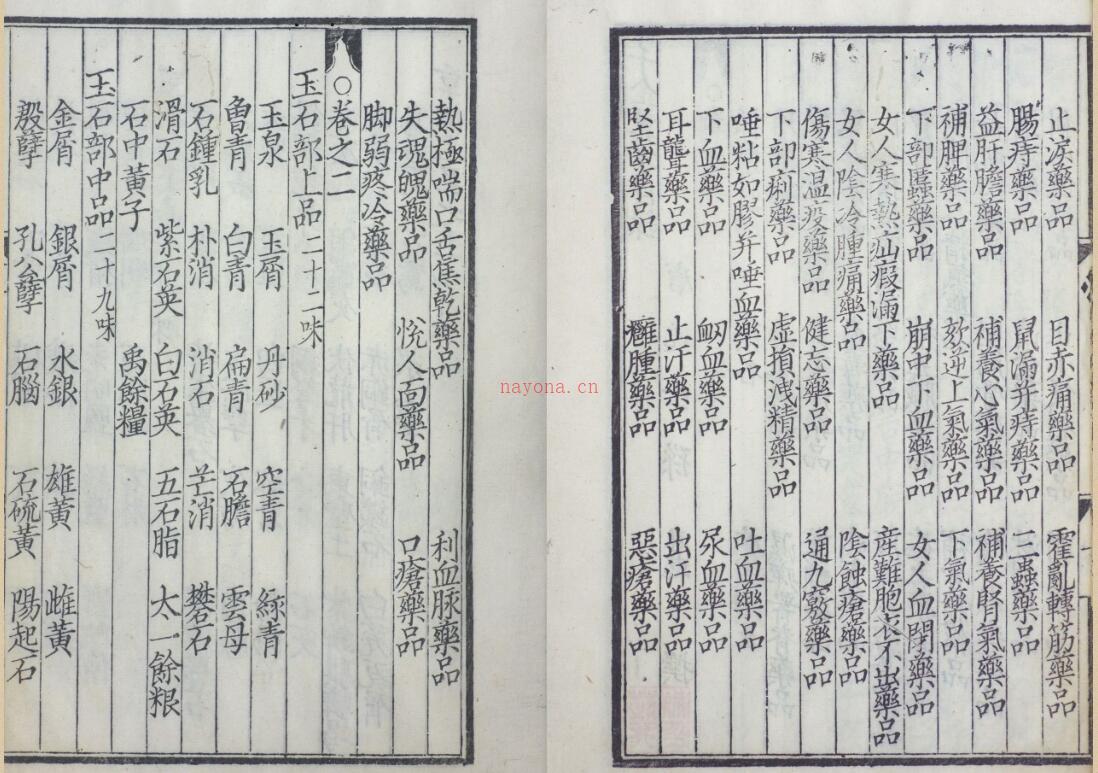 止淚藥品 目赤痛藥品 霍亂轉筋藥品
腸痔藥品 鼠漏并痔藥品 三蟲藥品
益肝膽藥品 補養心氣藥品 補養腎氣藥品
補脾藥品 欬逆上氣藥品 下氣藥品
下部䘌藥品 崩中下血藥品 女人血閉藥品
女人寒熱疝瘕漏下藥品 産難胞衣不出藥品
女人陰冷腫痛藥品 陰蝕瘡藥品
傷寒温疫藥品 健忘藥品 通九竅藥品
下部痢藥品 虚損洩精藥品
唾粘如膠并唾血藥品 吐血藥品
下血藥品 衂血藥品 尿血藥品
耳聾藥品 止汗藥品 出汗藥品
堅齒藥品 癰腫藥品 惡瘡藥品
熱極喘口舌焦乾藥品 利血脉藥品
失魂魄藥品 悅人面藥品 口瘡藥品
脚弱疼冷藥品
○卷之二
玉石部上品二十二味
玉泉 玉屑 丹砂 空青 綠青
曾青 白青 扁青 石膽 雲母
石鍾乳 朴消 消石 芒消 礬石
滑石 紫石英 白石英 五石脂 太一餘粮
石中黄子 禹餘糧
玉石部中品二十九味
金屑 銀屑 水銀 雄黄 雌黄
殷孽 孔公孽 石腦 石硫黄 陽起石
nayona.cn